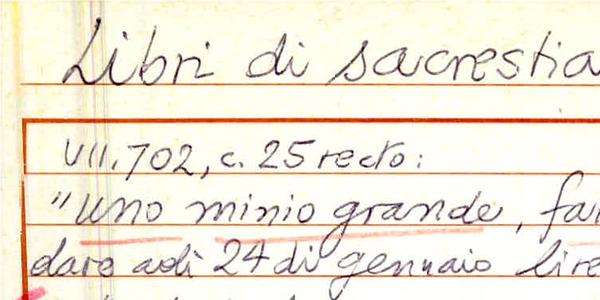 Libri di sacrestia
VII.702, c. 25 recto:
"uno minio grande,
dare adì 24 di gennaio lire